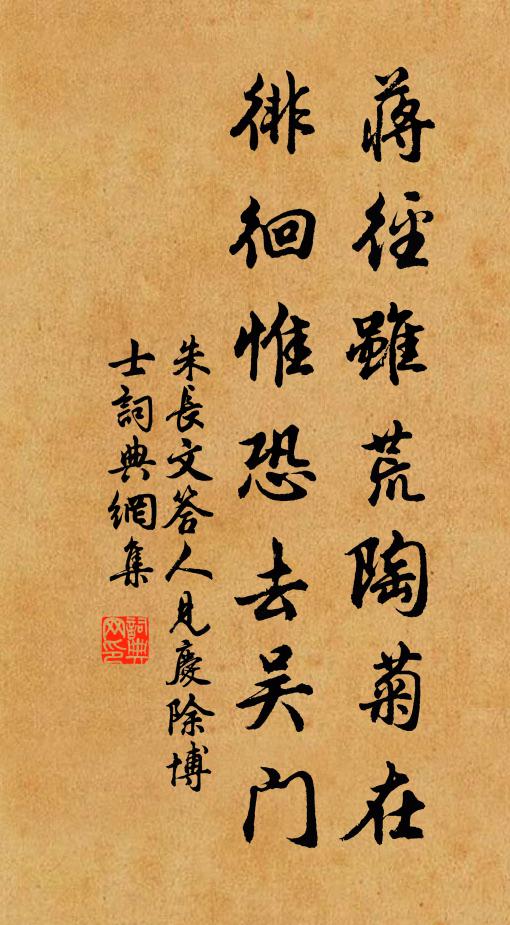 蔣徑雖荒陶菊在
徘徊惟恐去吴門
朱長文答人見慶除博
士詞典網集
詞典
网印